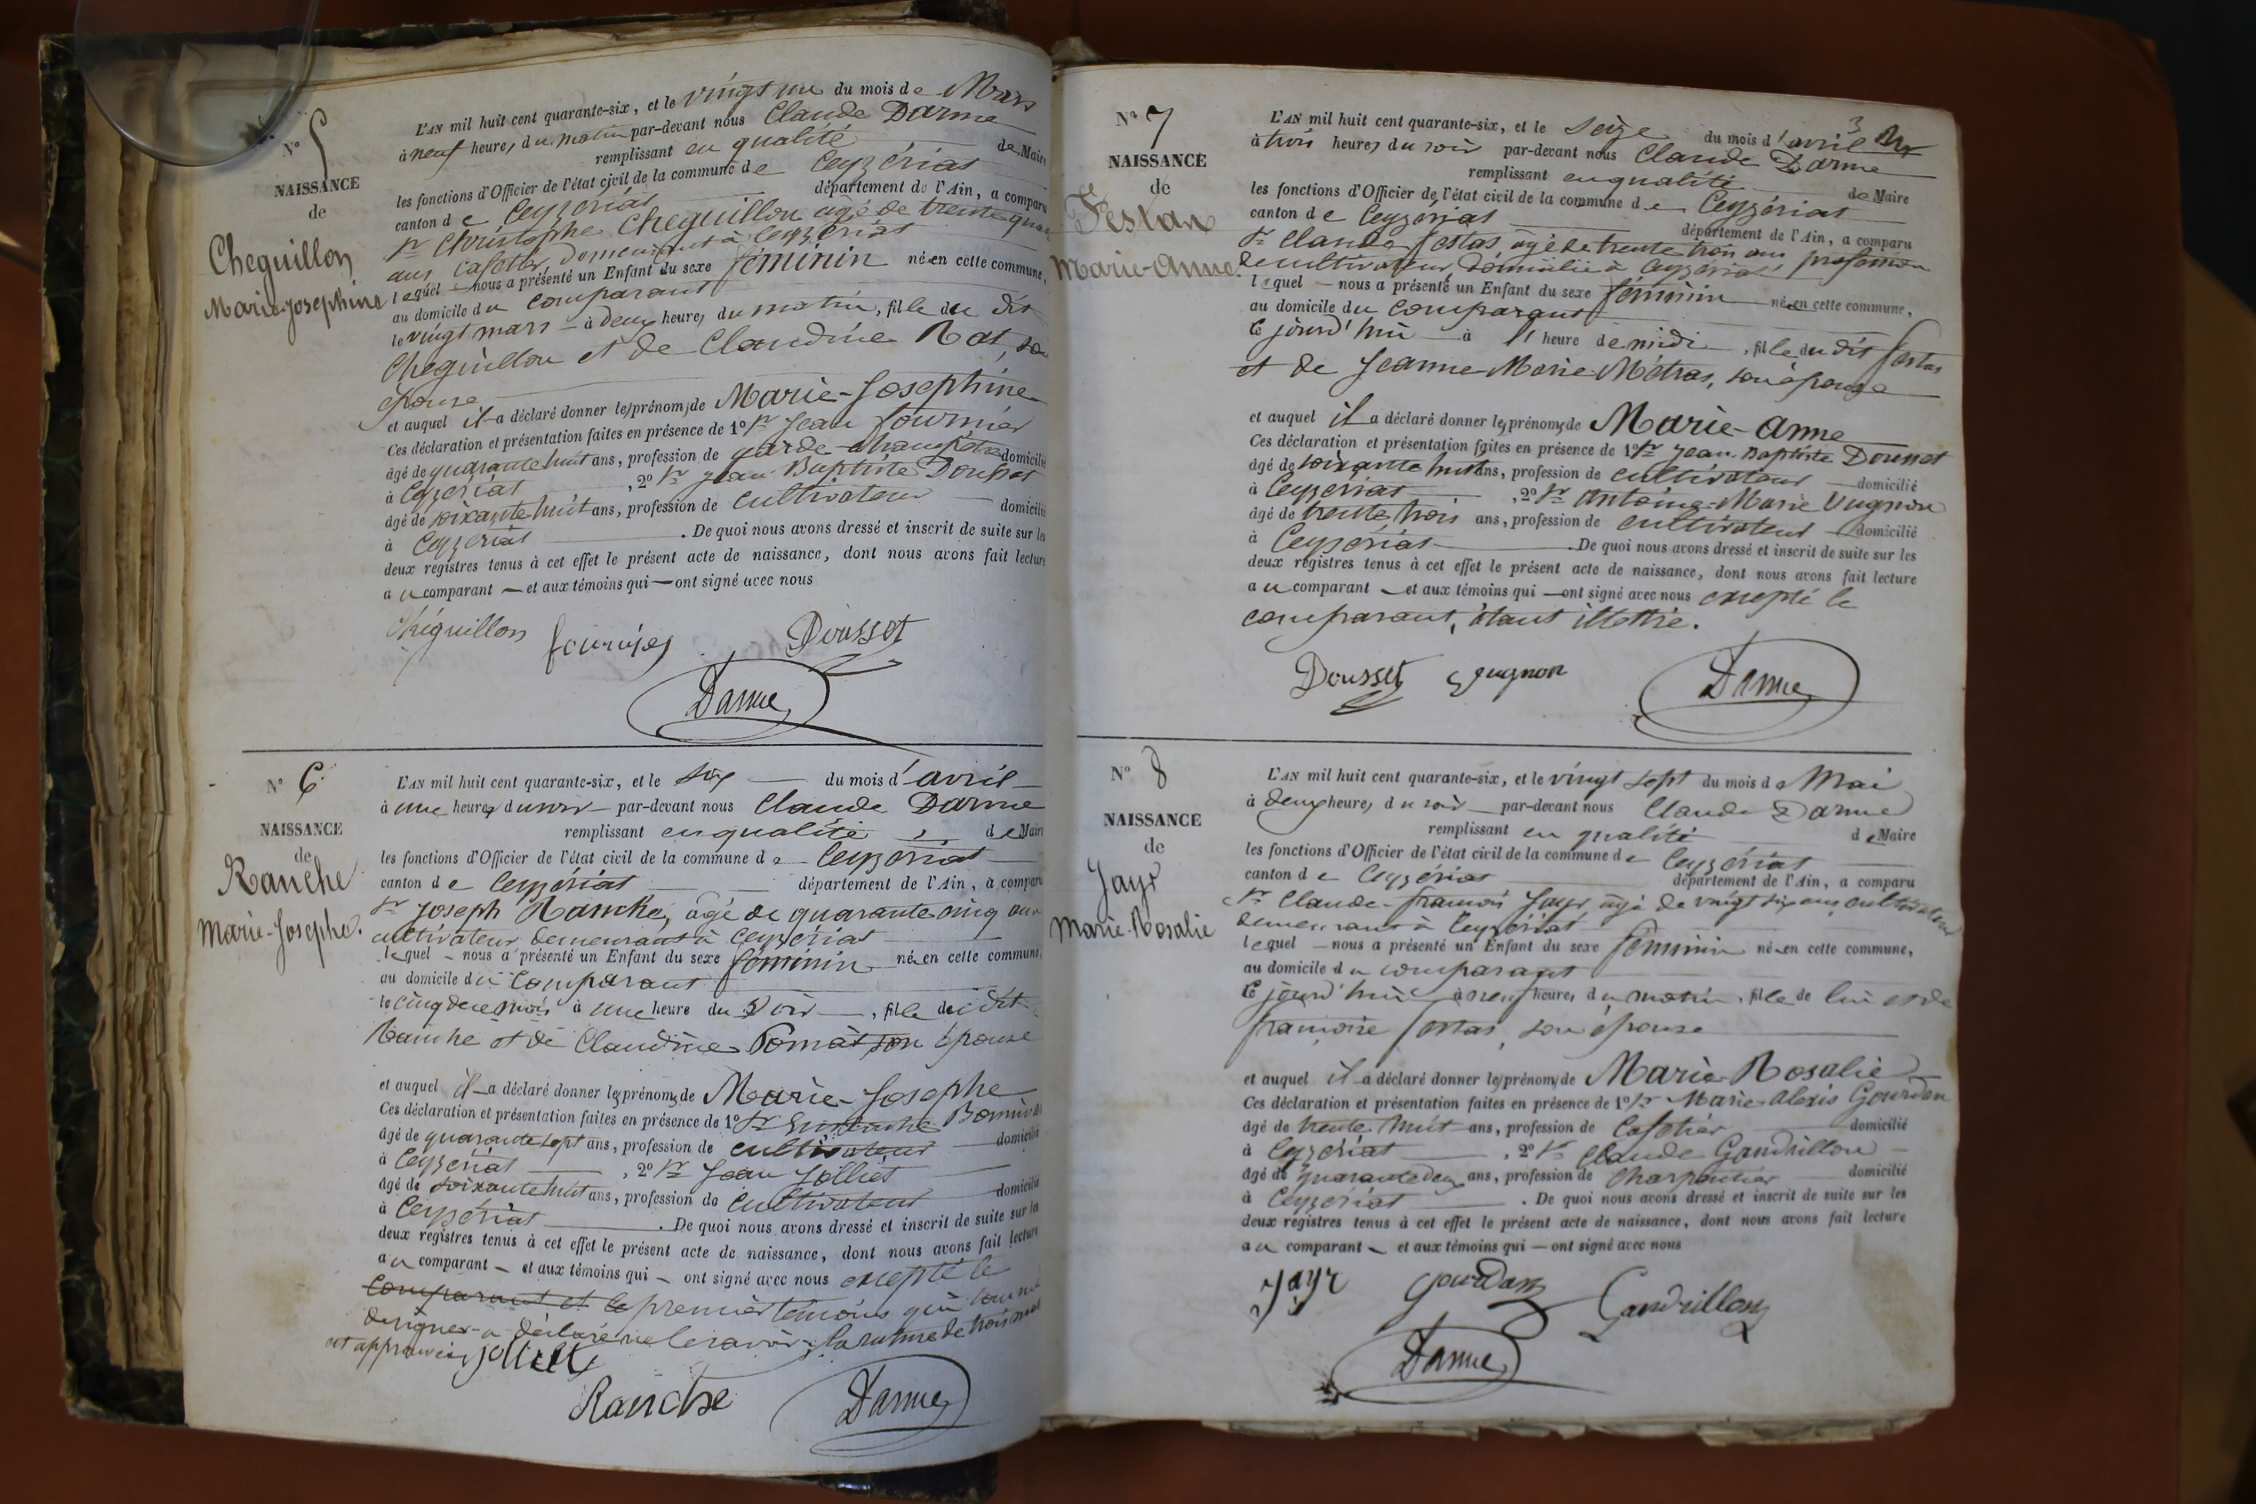 N° 5
NAISSANCE
de
Cheguillon
Marie-Josephine
L'AN mil huit cent quarante-six, et le vingt un du mois de Mars
à neuf heures du matin par-devant nous Claude Darme
remplissant en qualité de Maire
les fonctions d'Officier de l'état civil de la commune de Ceyzériat
canton de Ceyzériat département de l'Ain, a comparu
Sr Christophe Cheguillon âgé de trente quatre
ans, cafetier, demeurant à Ceyzériat
lequel nous a présenté un Enfant du sexe féminin né en cette commune,
au domicile du comparant
le vingt mars à deux heures du matin, fille du dit
Cheguillon et de Claudine Rat, son
épouse
et auquel il a déclaré donner les prénoms de Marie-Josephine
Ces déclaration et présentation faites en présence de 1° Sr Jean fournier
âgé de quarante huit ans, profession de garde champêtre domicilié
à Ceyzériat, 2° Sr Jean Baptiste Dousset
âgé de soixante huit ans, profession de cultivateur domicilié
à Ceyzériat. De quoi nous avons dressé et inscrit de suite sur les
deux registres tenus à cet effet le présent acte de naissance, dont nous avons fait lecture
au comparant et aux témoins qui ont signé avec nous
Chéguillon fournier Dousset
Darme
N° 6
NAISSANCE
de
Ranche
Marie-Josephe.
L'AN mil huit cent quarante-six, et le six du mois d'avril
à une heure du soir par-devant nous Claude Darme
remplissant en qualité de Maire
les fonctions d'Officier de l'état civil de la commune de Ceyzériat
canton de Ceyzériat département de l'Ain, a comparu
Sr Joseph Ranche, âgé de quarante cinq ans
cultivateur demeurant à Ceyzériat
lequel nous a présenté un Enfant du sexe féminin né en cette commune,
au domicile du comparant
le cinq de ce mois à une heure du soir, fille du dit
Ranche et de Claudine Pomat son épouse
et auquel il a déclaré donner les prénoms de Marie-Josephe
Ces déclaration et présentation faites en présence de 1° Sr Eustache
âgé de quarante sept ans, profession de cultivateur domicilié
à Ceyzériat, 2° Sr Jean Jolliet
âgé de soixante huit ans, profession de cultivateur domicilié
à Ceyzériat. De quoi nous avons dressé et inscrit de suite sur les
deux registres tenus à cet effet le présent acte de naissance, dont nous avons fait lecture
au comparant et aux témoins qui ont signé avec nous excepté le
comparant et le premier témoins qui
de signer a déclaré ne le savoir; la rature de trois mots
est approuvée, jolliet
Ranche Darme
3
N° 7
NAISSANCE
de
Festas
Marie-Anne.
L'AN mil huit cent quarante-six, et le seize du mois d'avril
à trois heures du soir par-devant nous Claude Darme
remplissant en qualité de Maire
les fonctions d'Officier de l'état civil de la commune de Ceyzériat
canton de Ceyzériat département de l'Ain, a comparu
Sr Claude festas, âgé de trente trois ans, profession
de cultivateur, domicilié à Ceyzériat
lequel nous a présenté un Enfant du sexe féminin né en cette commune,
au domicile du comparant
Ce jourd'hui à l'heure de midi, fille du dit festas
et de Jeanne-Marie Métras, son épouse
et auquel il a déclaré donner les prénoms de Marie-Anne
Ces déclaration et présentation faites en présence de 1° Sr Jean-Baptiste Dousset
âgé de soixante huit ans, profession de cultivateur domicilié
à Ceyzériat, 2° Sr Antoine-Marie Vugnon
âgé de trente trois ans, profession de cultivateur domicilié
à Ceyzériat. De quoi nous avons dressé et inscrit de suite sur les
deux registres tenus à cet effet le présent acte de naissance, dont nous avons fait lecture
au comparant et aux témoins qui ont signé avec nous excepté le
comparant, étant illettré.
Dousset Darme
N° 8
NAISSANCE
de
Jayr
Marie-Rosalie
L'AN mil huit cent quarante-six, et le vingt sept du mois de Mai
à deux heures du soir par-devant nous Claude Darme
remplissant en qualité de Maire
les fonctions d'Officier de l'état civil de la commune de Ceyzériat
canton de Ceyzériat département de l'Ain, a comparu
Sr Claude-françois Jayr, âgé de vingt six ans, cultivateur
demeurant à Ceyzériat
lequel nous a présenté un Enfant du sexe féminin né en cette commune,
au domicile du comparant
Ce jourd'hui à neuf heures du matin, fille de lui et de
françoise festas, son épouse
et auquel il a déclaré donner les prénoms de Marie-Rosalie
Ces déclaration et présentation faites en présence de 1° Sr Marie-Alexis Gourdan
âgé de trente huit ans, profession de Cafetier domicilié
à Ceyzériat, 2° Sr Claude Gandrillon
âgé de quarante deux ans, profession de charpentier domicilié
à Ceyzériat. De quoi nous avons dressé et inscrit de suite sur les
deux registres tenus à cet effet le présent acte de naissance, dont nous avons fait lecture
au comparant et aux témoins qui ont signé avec nous
Jayr Gourdan Gandrillon
Darme